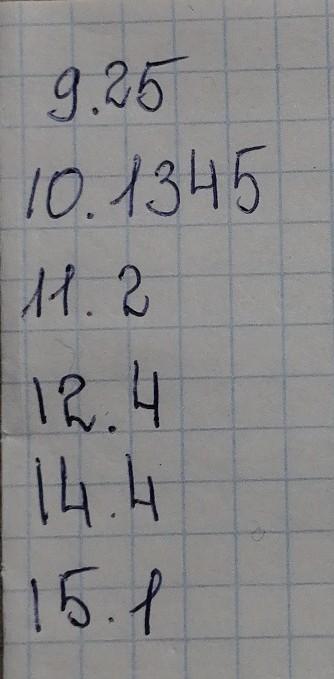 9.25
10.1345
11.2
12.4
14.4
15.1